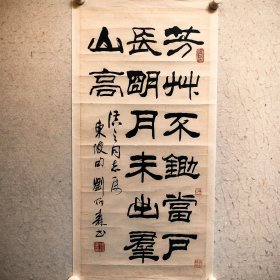 芳艸不鋤當戶
長明月未出羣
山高
之同志屬
東坡句 劉炳森書